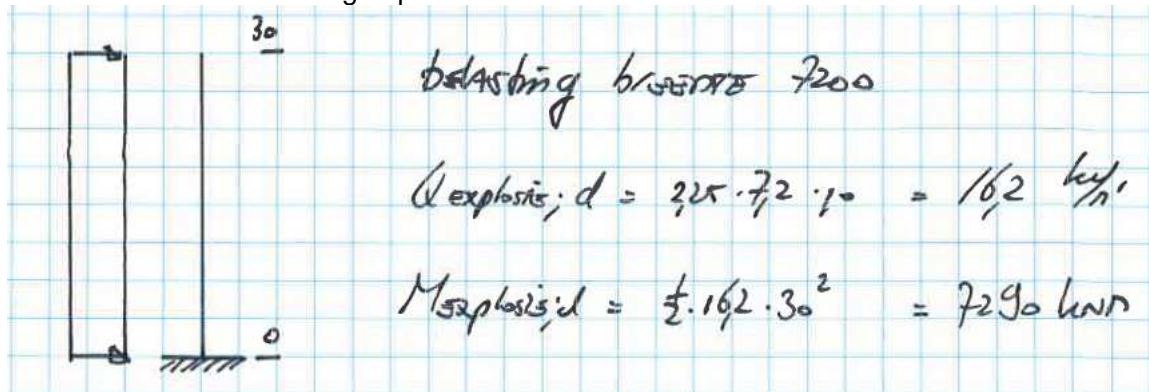 30
belasting breedte 7200
Qexplosie;d = 2,25 · 7,2 · 1,0 = 16,2 kN/m'
Mexplosie;d = ½ · 16,2 · 30² = 7290 kNm
0